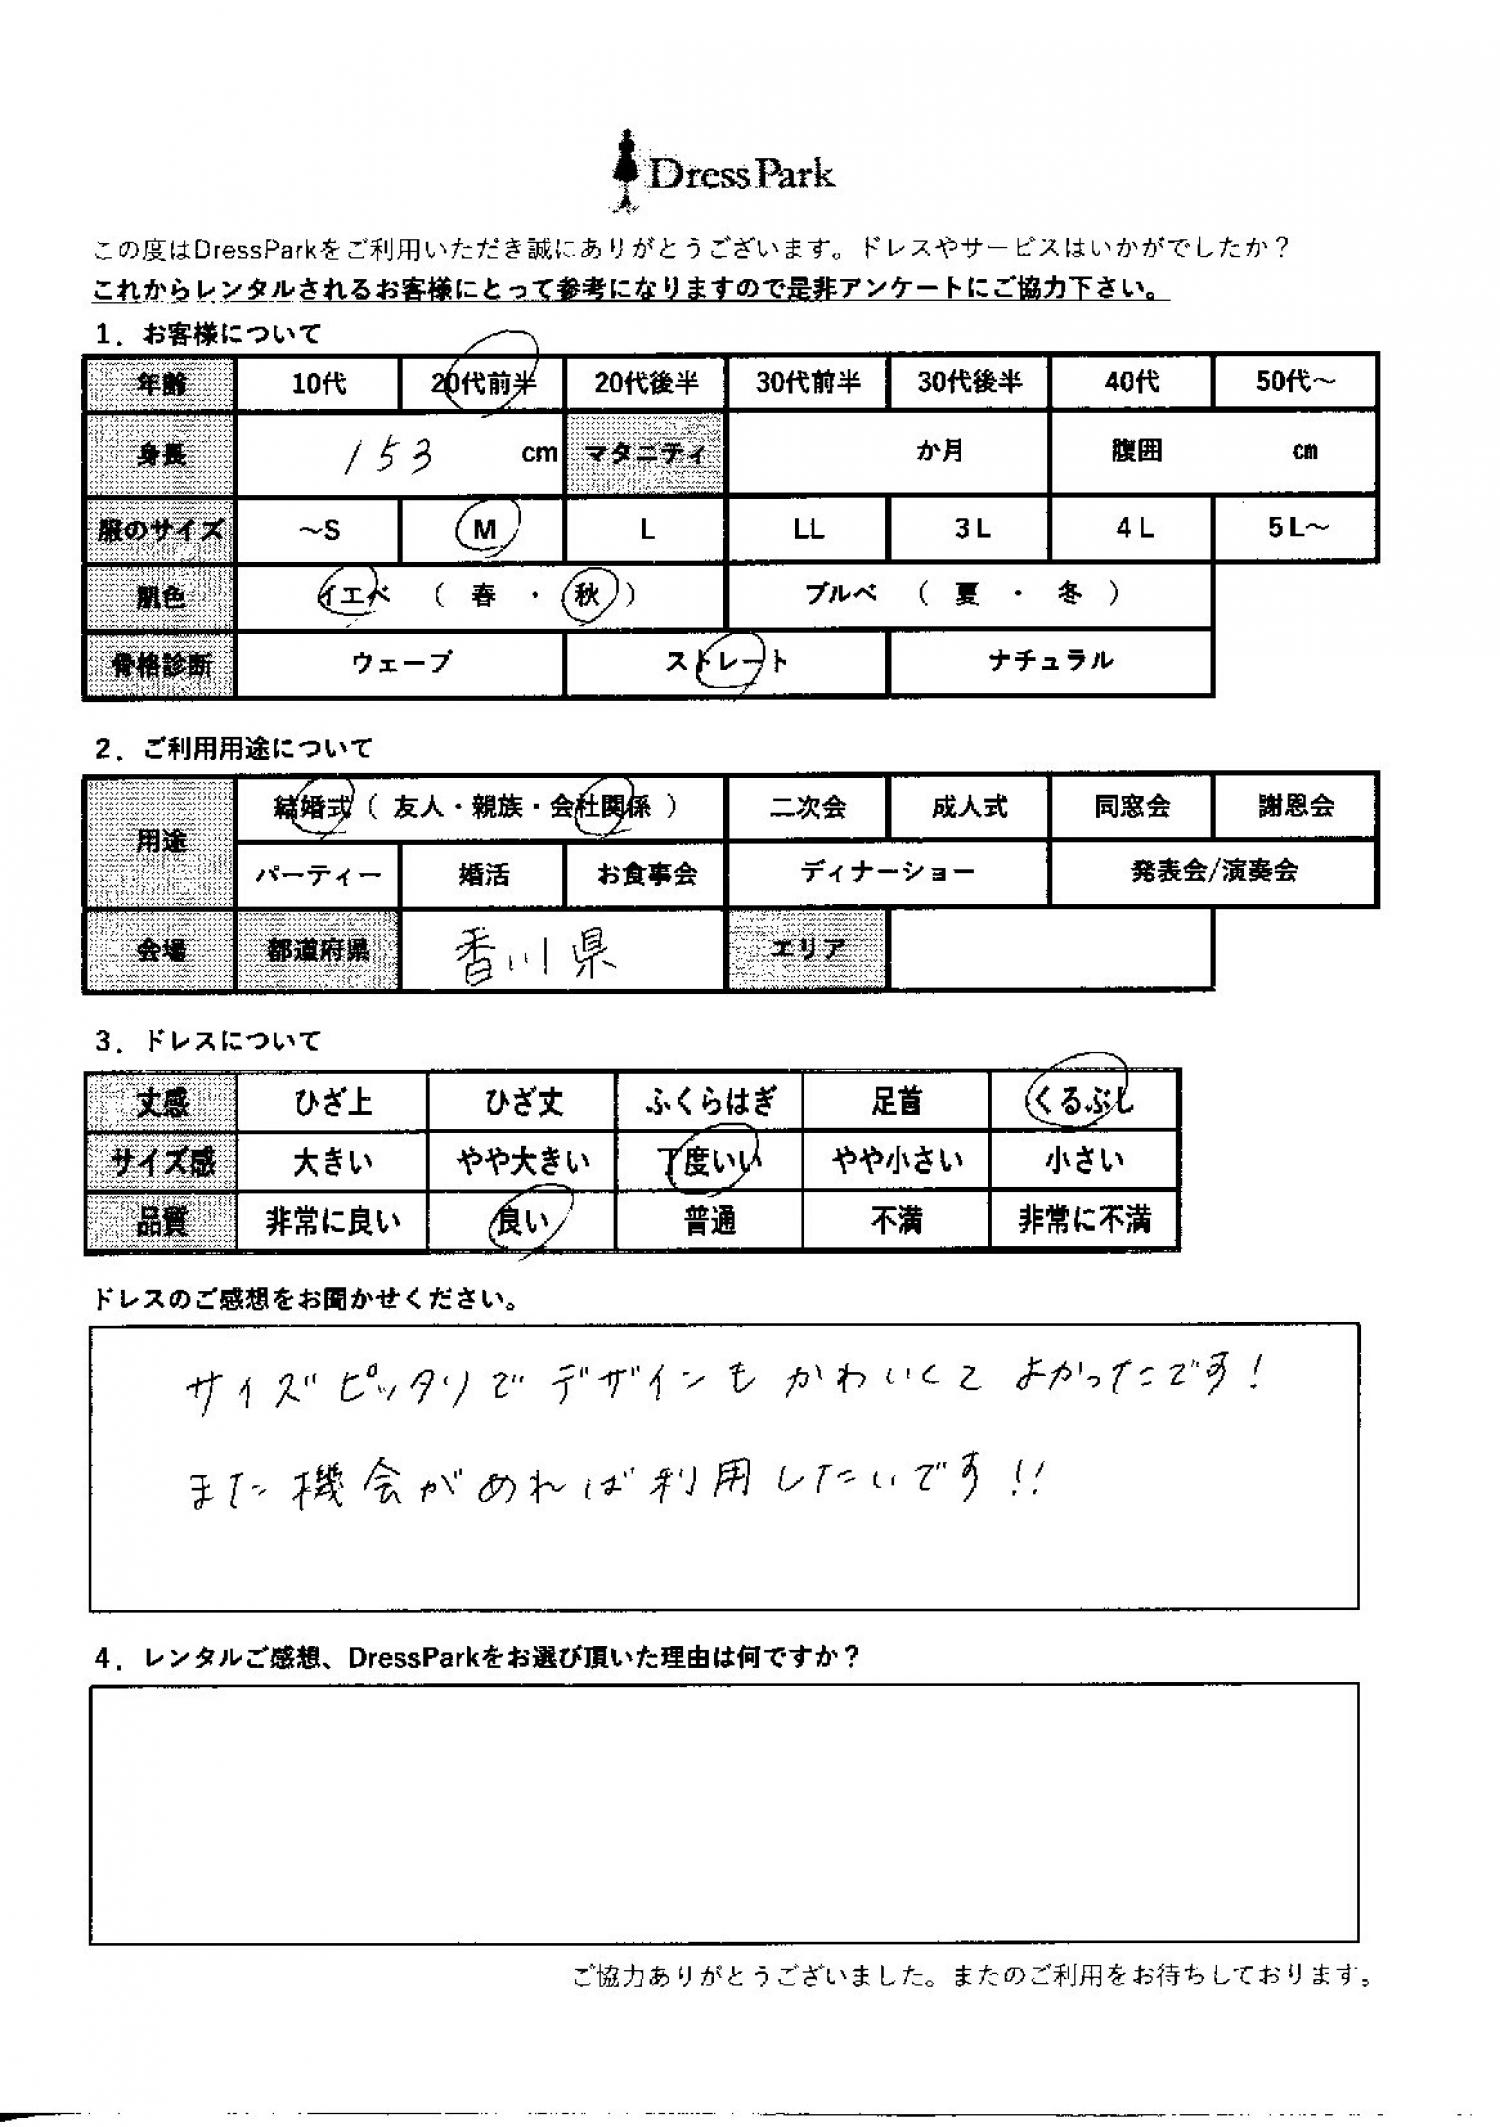 DressPark
この度はDressParkをご利用いただき誠にありがとうございます。ドレスやサービスはいかがでしたか？
これからレンタルされるお客様にとって参考になりますので是非アンケートにご協力下さい。
1．お客様について
年齢 10代 20代前半 20代後半 30代前半 30代後半 40代 50代～
身長 153 cm マタニティ か月 腹囲 cm
服のサイズ ～S M L LL 3L 4L 5L～
肌色 イエベ （ 春 ・ 秋 ） ブルベ （ 夏 ・ 冬 ）
骨格診断 ウェーブ ストレート ナチュラル
2．ご利用用途について
用途 結婚式（ 友人・親族・会社関係 ） 二次会 成人式 同窓会 謝恩会
パーティー 婚活 お食事会 ディナーショー 発表会/演奏会
会場 都道府県 香川県 エリア
3．ドレスについて
丈感 ひざ上 ひざ丈 ふくらはぎ 足首 くるぶし
サイズ感 大きい やや大きい 丁度いい やや小さい 小さい
品質 非常に良い 良い 普通 不満 非常に不満
ドレスのご感想をお聞かせください。
サイズピッタリでデザインもかわいくてよかったです！
また機会があれば利用したいです！！
4．レンタルご感想、DressParkをお選び頂いた理由は何ですか？
ご協力ありがとうございました。またのご利用をお待ちしております。